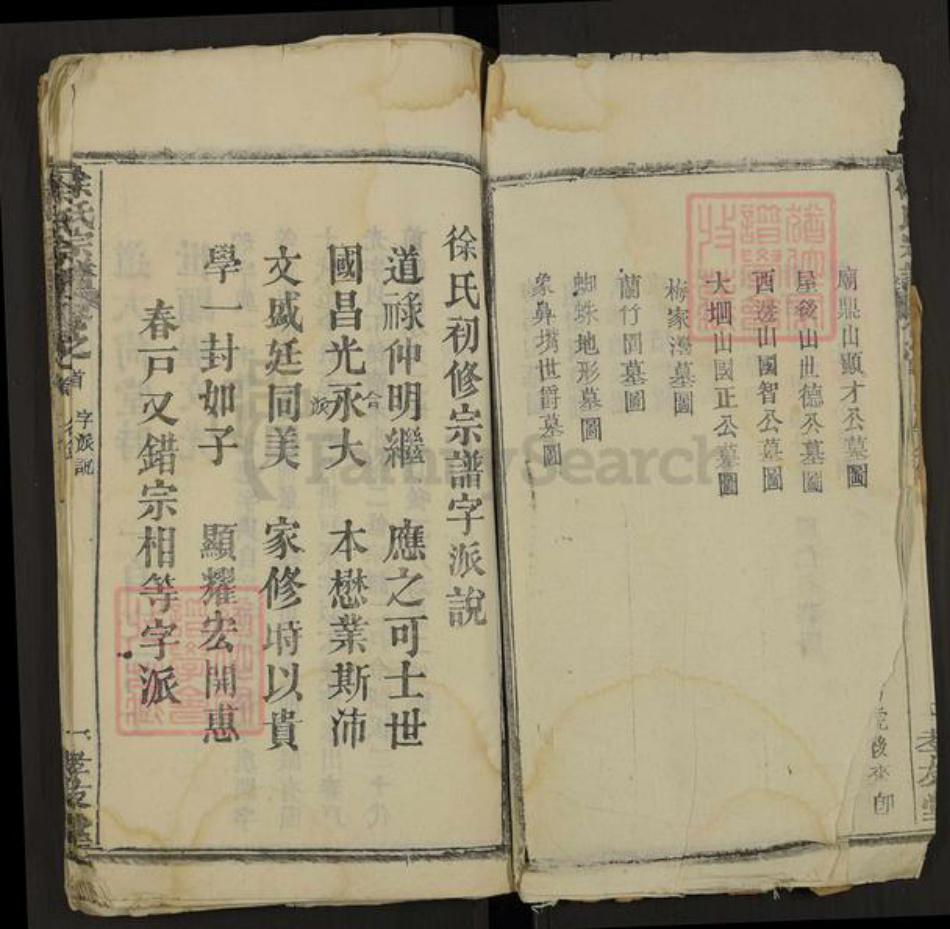 廟鼎山顯才公墓圖
屋後山世德公墓圖
西邊山國智公墓圖
大堌山國正公墓圖
梅家灣墓圖
蘭竹園墓圖
蜘蛛地形墓圖
象鼻塆世爵墓圖
徐氏初修宗譜字派說
道祿仲明繼 應之可士世
國昌光永大 本懋業斯沛
合派
文盛廷同美 家修時以貴
學一封如子 顯耀宏開惠
春戶又錯宗相等字派
徐氏宗譜卷之首
字派說
一
孝友堂
FamilySearch